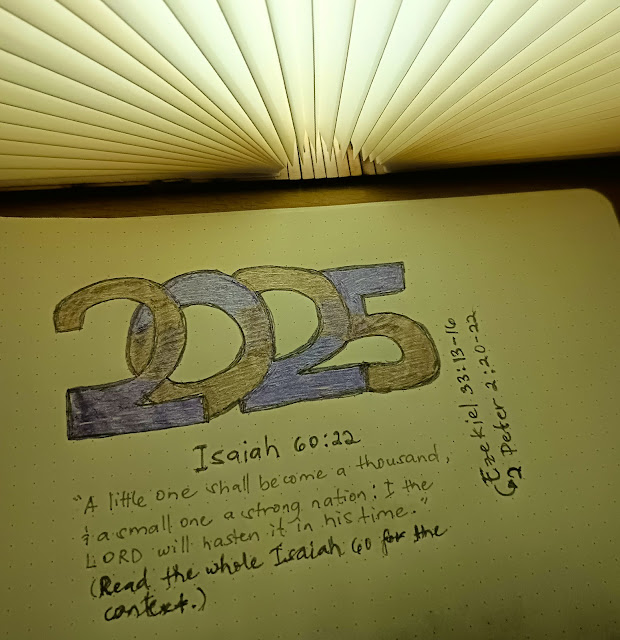 2025
Isaiah 60:22
"A little one shall become a thousand,
& a small one a strong nation: I the
LORD will hasten it in his time."
(Read the whole Isaiah 60 for the
context.)
Ezekiel 33:13-16
2 Peter 2:20-22